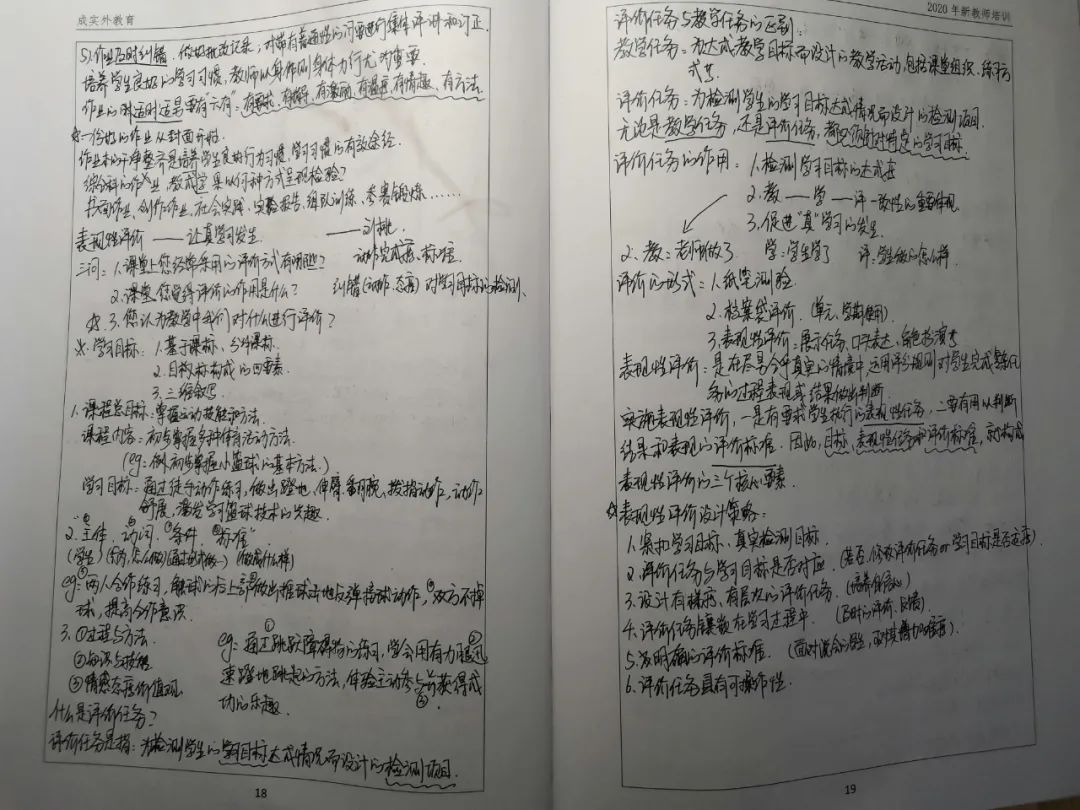 成实外教育
5)作业及时纠错,做好批改记录,对带有普遍性的问题进行集体评讲和订正
培养学生良好的学习习惯,教师以身作则身体力行尤为重要
作业的时适时适量要有"六有":有要求、有 有 有温度、有情趣、有方法.
☆一份好的作业从封面开始.
作业本的干净整齐是培养学生良好行为习惯,学习习惯的有效途径.
综合科的作业,教学成果以何种方式呈现检验?
书面作业、创作作业、社会实践、实验报告、组队训练、参赛锻炼……
表现性评价 ——让真学习发生 ——刘桃
三问:1.课堂上您经常采用的评价方式有哪些? 动作完成度、标准.
2.课堂,您觉得评价的作用是什么? 纠错(动作、态度)对学习目标的检测.
☆3.您认为教学中我们对什么进行评价?
※学习目标:1.基于课标、分解课标.
2.目标构成的四要素.
3.三维叙写
1.课程总目标:掌握运动技能和方法.
课程内容:初步掌握多种体育活动方法.
(eg:例初步掌握小篮球的基本方法.)
学习目标:通过徒手动作练习,做出蹬地、伸臂、翻腕、拨指动作,动作舒展,激发学习篮球技术的兴趣.
2.主体、动词、条件、标准
(学生) (会做什么) (做成什么样)
eg:两人合作练习,触球的右上部做出推球击地反弹接球动作,双方不掉
球,提高合作意识.
3.①过程与方法. eg:通过跳跃障碍物的练习,学会用有力迅
②知识与技能 速蹬地跳起的方法,体验主动参与并获得成
③情感态度价值观 功的乐趣.
什么是评价任务?
评价任务是指:为检测学生的学习目标达成情况而设计的检测项目.
18
2020 年新教师培训
评价任务与教学任务的区别:
教学任务:为达成教学目标而设计的教学活动,包括课堂组织、练习方
式等.
评价任务:为检测学生的学习目标达成情况而设计的检测项目.
无论是教学任务,还是评价任务,都必须针对特定的学习目标.
评价任务的作用:1.检测学习目标的达成度
2.教——学——评一致性的重要体现.
3.促进"真"学习的发生.
2.教:老师做了 学:学生学了 评:学生做的怎么样.
评价的形式:1.纸笔测验.
2.档案袋评价.(单元、学期使用)
3.表现性评价:展示任务、口头表达、角色扮演等
表现性评价:是在尽量合乎真实的情境中,运用评分规则对学生完成复杂任
务的过程表现或结果做出判断.
实施表现性评价,一是有要求学生执行的表现性任务,二要有用以判断
结果和表现的评价标准.因此,目标、表现性任务和评价标准,就构成
表现性评价的三个核心要素.
☆表现性评价设计策略:
1.紧扣学习目标、真实检测目标.
2.评价任务与学习目标是否对应.(若否,修改评价任务or学习目标是否适度).
3.设计有梯度、有层次的评价任务.
4.评价任务镶嵌在学习过程中.(及时的评价、反馈).
5.为明确的评价标准.
6.评价任务具有可操作性.
19